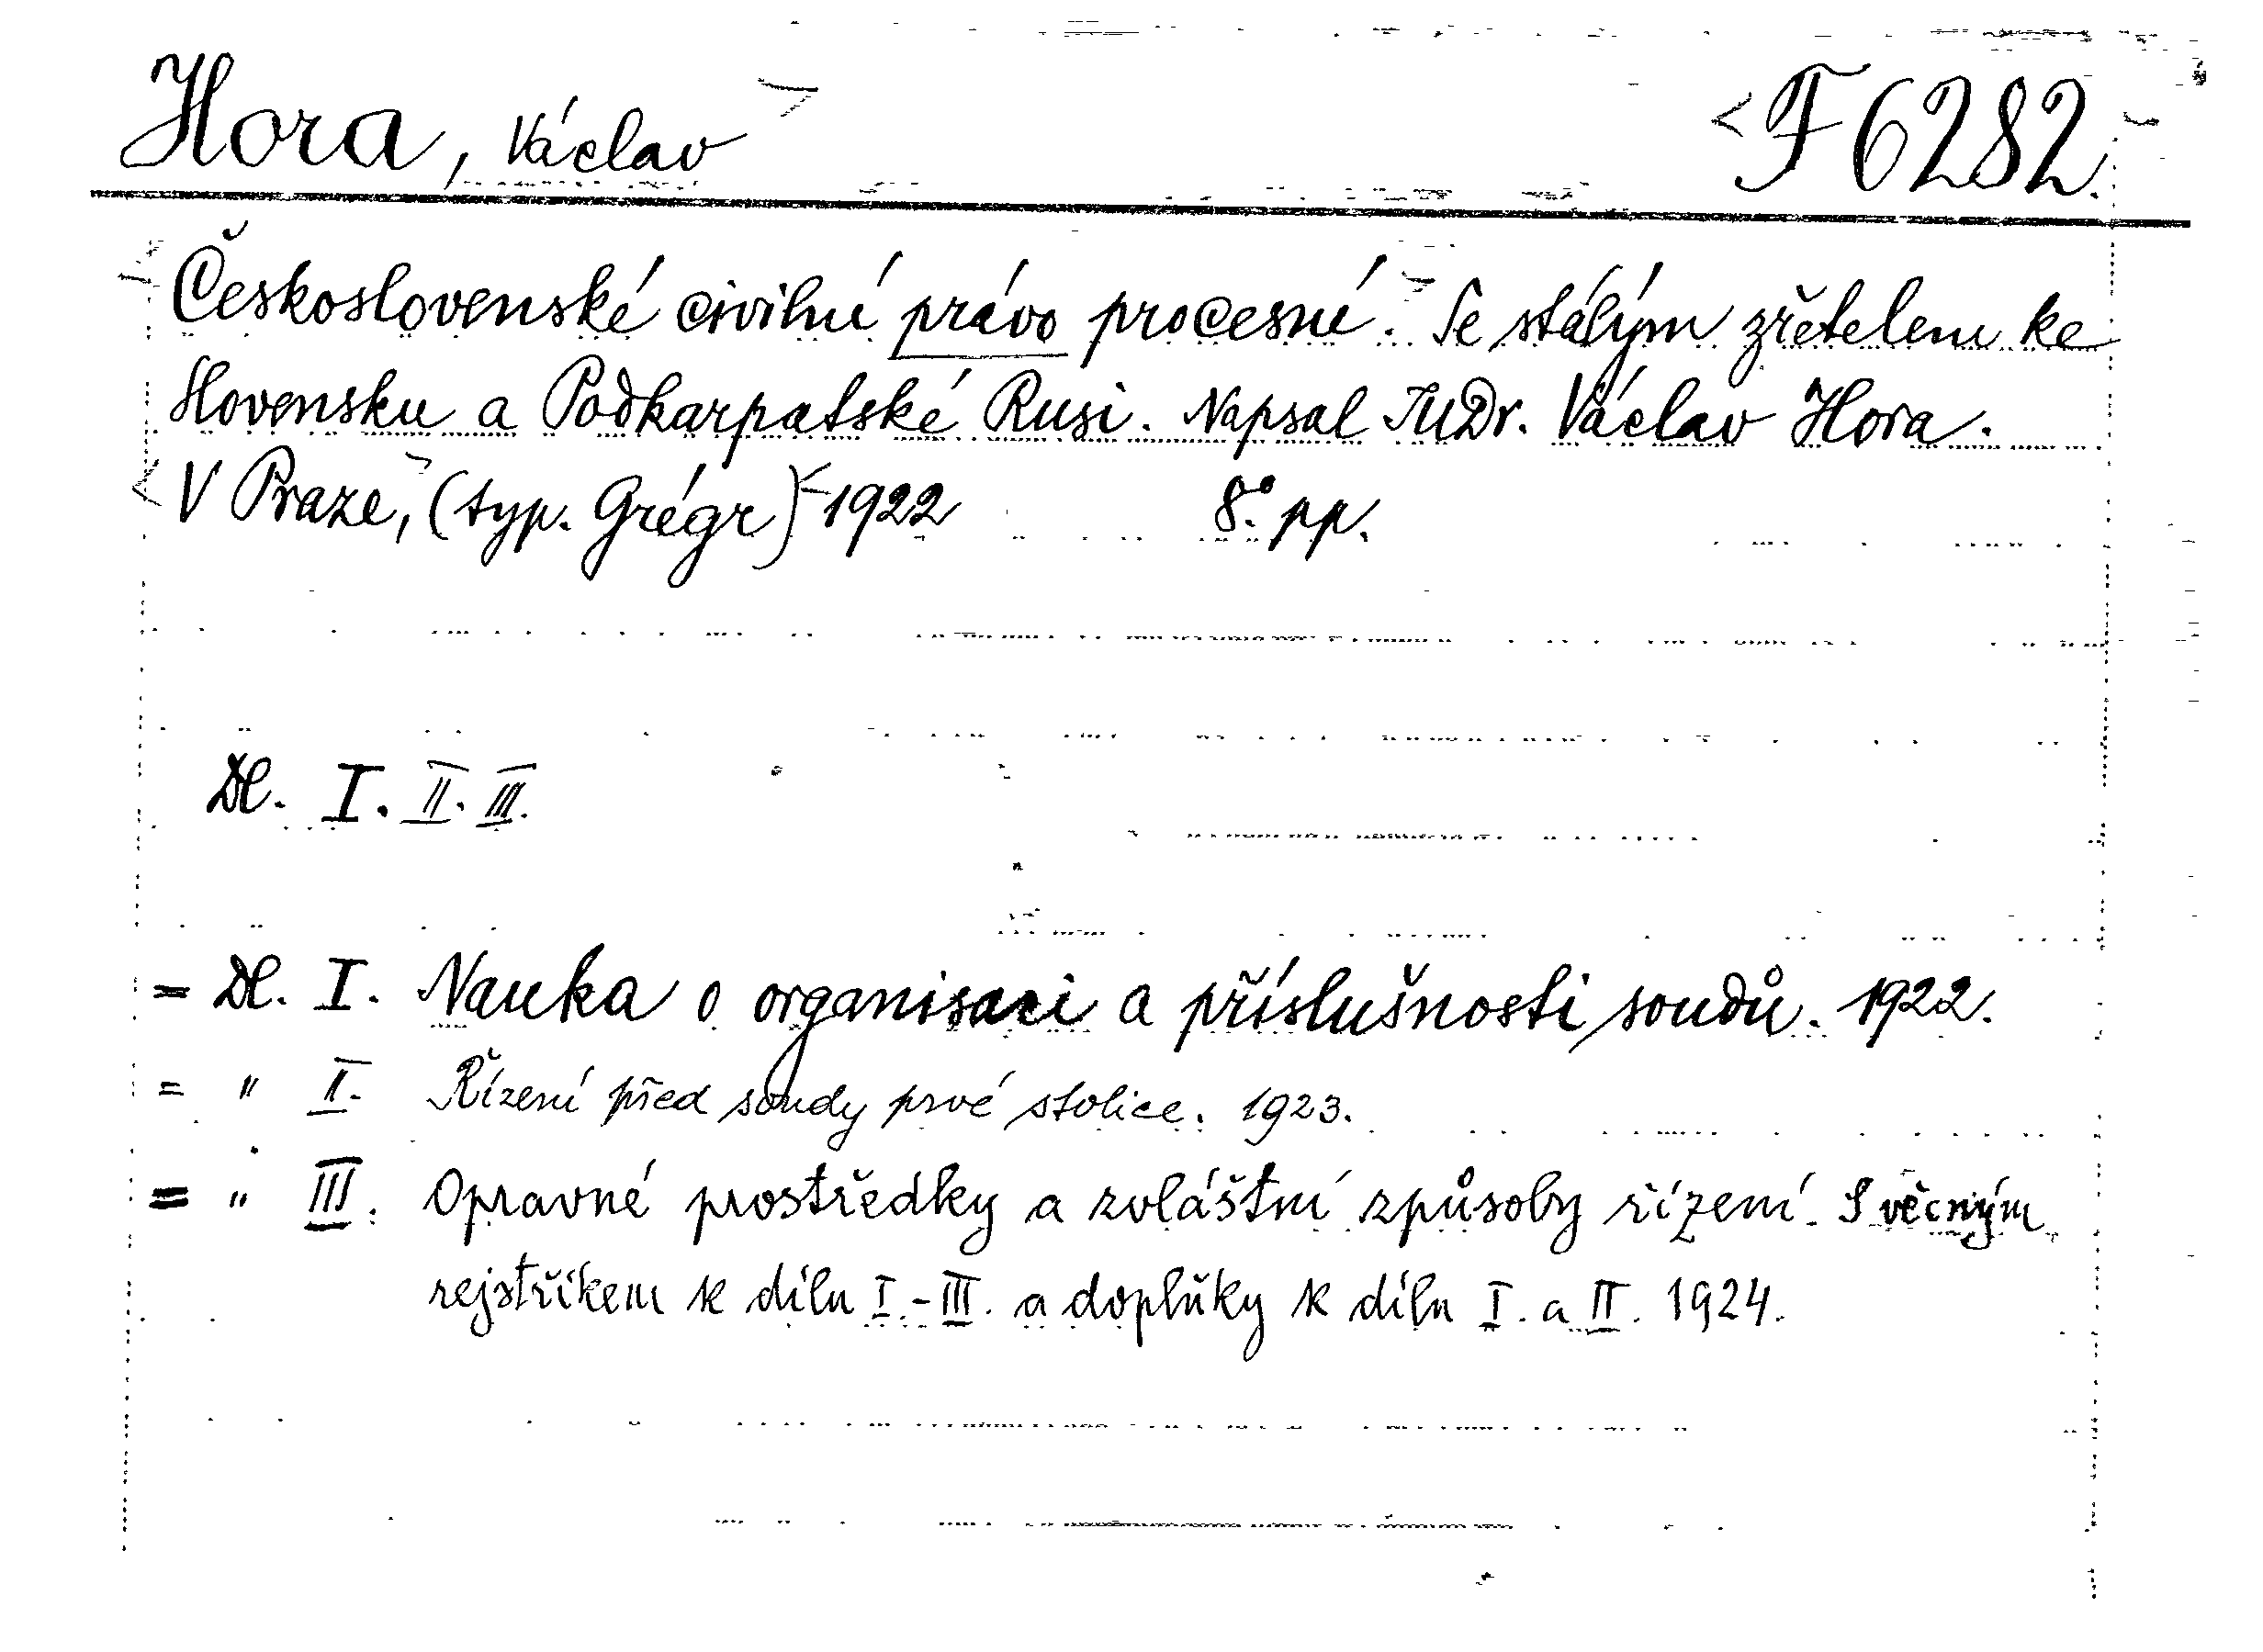 Hora, Václav F 6282.
Československé civilní právo procesní. Se stálým zřetelem ke
Slovensku a Podkarpatské Rusi. Napsal JUDr. Václav Hora.
V Praze, (typ. Grégr) 1922 8° pp.
Dl. I. II. III.
= Dl. I. Nauka o organisaci a příslušnosti soudů. 1922.
= " II. Řízení před soudy prvé stolice. 1923.
= " III. Opravné prostředky a zvláštní způsoby řízení. S věcným
rejstříkem k dílu I.-III. a doplňky k dílu I. a II. 1924.